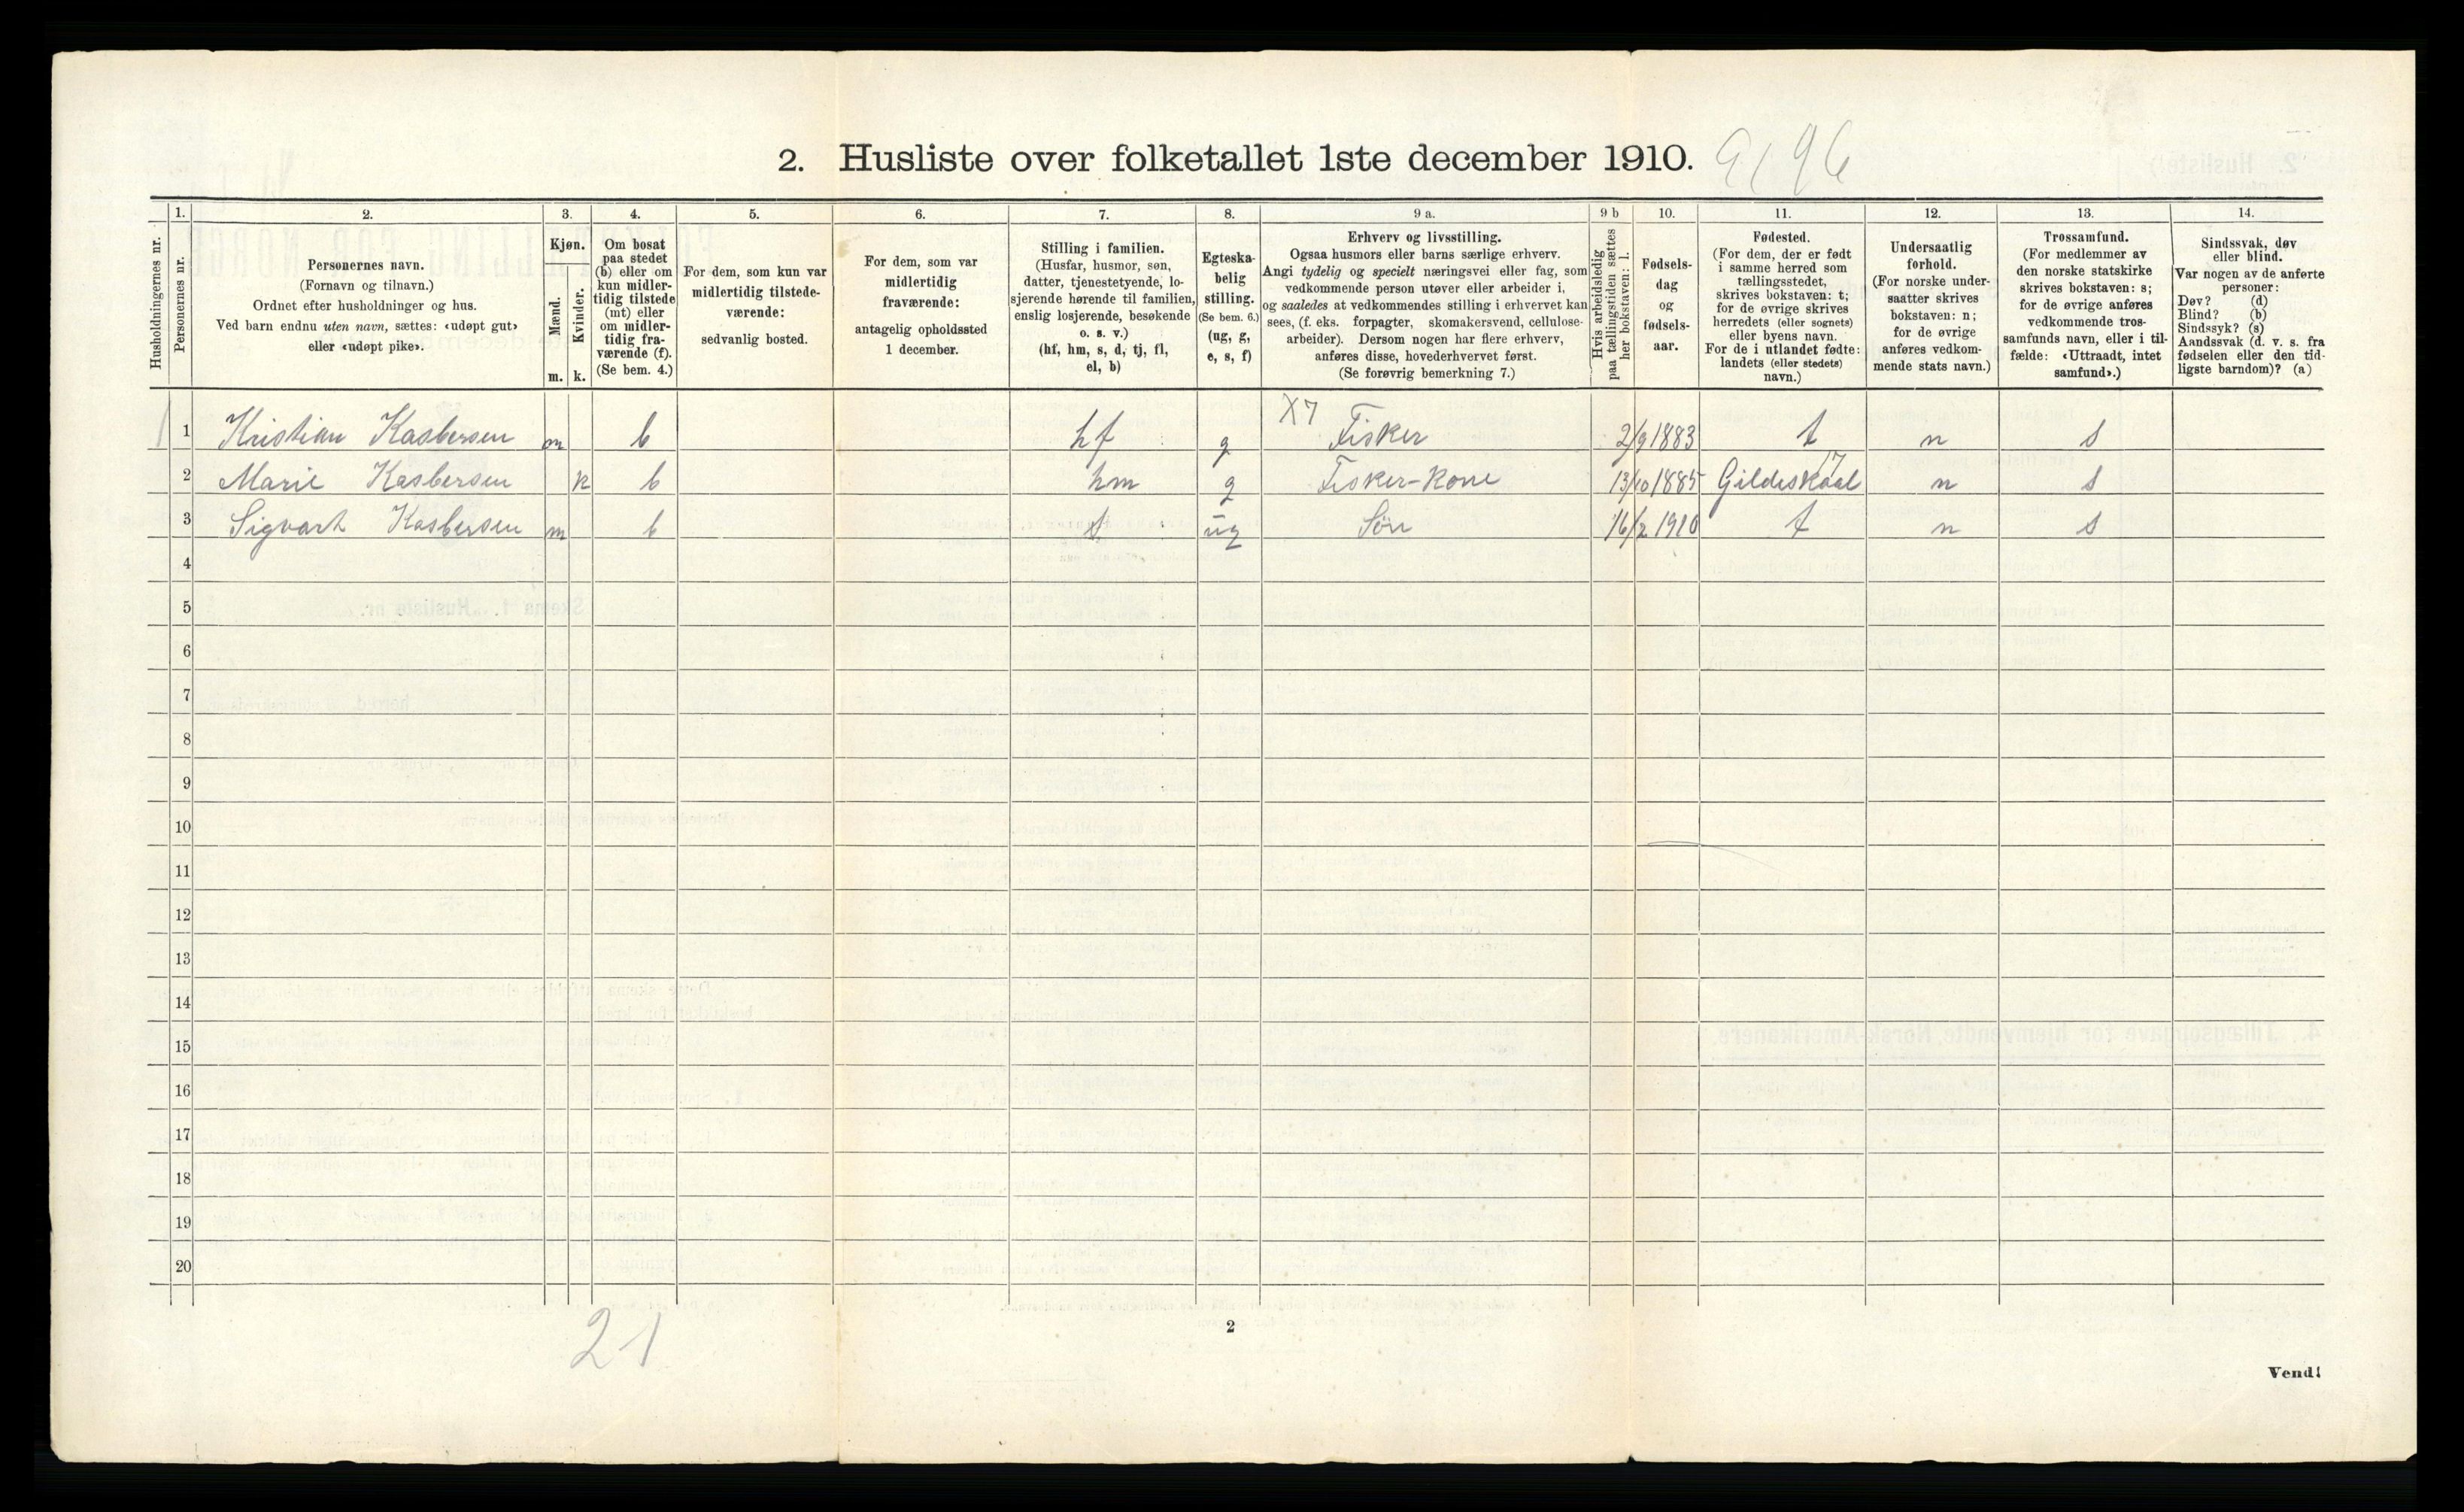 2. Husliste over folketallet 1ste december 1910.
Husholdningernes nr.
1.
Personernes nr.
2.
Personernes navn.
(Fornavn og tilnavn.)
Ordnet efter husholdninger og hus.
Ved barn endnu uten navn, sættes: «udøpt gut»
eller «udøpt pike».
3.
Kjøn.
Mænd.
Kvinder.
m. k.
4.
Om bosat
paa stedet
(b) eller om
kun midler-
tidig tilstede
(mt) eller
om midler-
tidig fra-
værende (f).
(Se bem. 4.)
5.
For dem, som kun var
midlertidig tilstede-
værende:
sedvanlig bosted.
6.
For dem, som var
midlertidig
fraværende:
antagelig opholdssted
1 december.
7.
Stilling i familien.
(Husfar, husmor, søn,
datter, tjenestetyende, lo-
sjerende hørende til familien,
enslig losjerende, besøkende
o. s. v.)
(hf, hm, s, d, tj, fl,
el, b)
8.
Egteska-
belig
stilling.
(Se bem. 6.)
(ug, g,
e, s, f)
9 a.
Erhverv og livsstilling.
Ogsaa husmors eller barns særlige erhverv.
Angi tydelig og specielt næringsvei eller fag, som
vedkommende person utøver eller arbeider i,
og saaledes at vedkommendes stilling i erhvervet kan
sees, (f. eks. forpagter, skomakersvend, cellulose-
arbeider). Dersom nogen har flere erhverv,
anføres disse, hovederhvervet først.
(Se forøvrig bemerkning 7.)
9 b
Hvis arbeidsledig
paa tællingstiden sættes
her bokstaven: l.
10.
Fødsels-
dag
og
fødsels-
aar.
11.
Fødested.
(For dem, der er født
i samme herred som
tællingsstedet,
skrives bokstaven: t;
for de øvrige skrives
herredets (eller sognets)
eller byens navn.
For de i utlandet fødte:
landets (eller stedets)
navn.)
12.
Undersaatlig
forhold.
(For norske under-
saatter skrives
bokstaven: n;
for de øvrige
anføres vedkom-
mende stats navn.)
13.
Trossamfund.
(For medlemmer av
den norske statskirke
skrives bokstaven: s;
for de øvrige anføres
vedkommende tros-
samfunds navn, eller i til-
fælde: «Uttraadt, intet
samfund».)
14.
Sindssvak, døv
eller blind.
Var nogen av de anførte
personer:
Døv? (d)
Blind? (b)
Sindssyk? (s)
Aandssvak (d. v. s. fra
fødselen eller den tid-
ligste barndom)? (a)
X7
1 Kristian Kasbersen m b hf g Fisker 2/9 1883 t n s
17
2 Marie Kasbersen k b hm g Fisker-Kone 13/10 1885 Gildeskaal n s
3 Sigvart Kasbersen m b s ug Sön 16/2 1910 t n s
4
5
6
7
8
9
10
11
12
13
14
15
16
17
18
19
20
21
2
Vend!